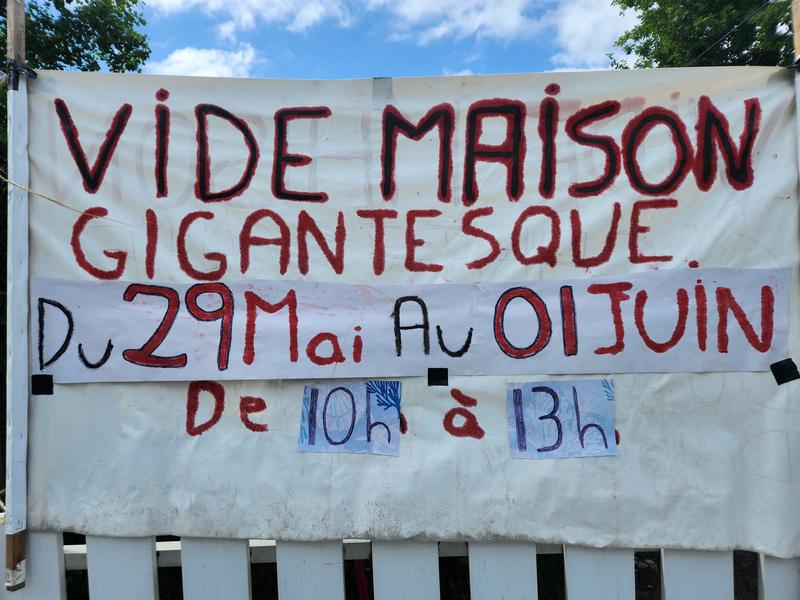 ViDE MAiSON
GIGANTESQUE
Du 29 Mai Au 01 JUiN
De 10h à 13h